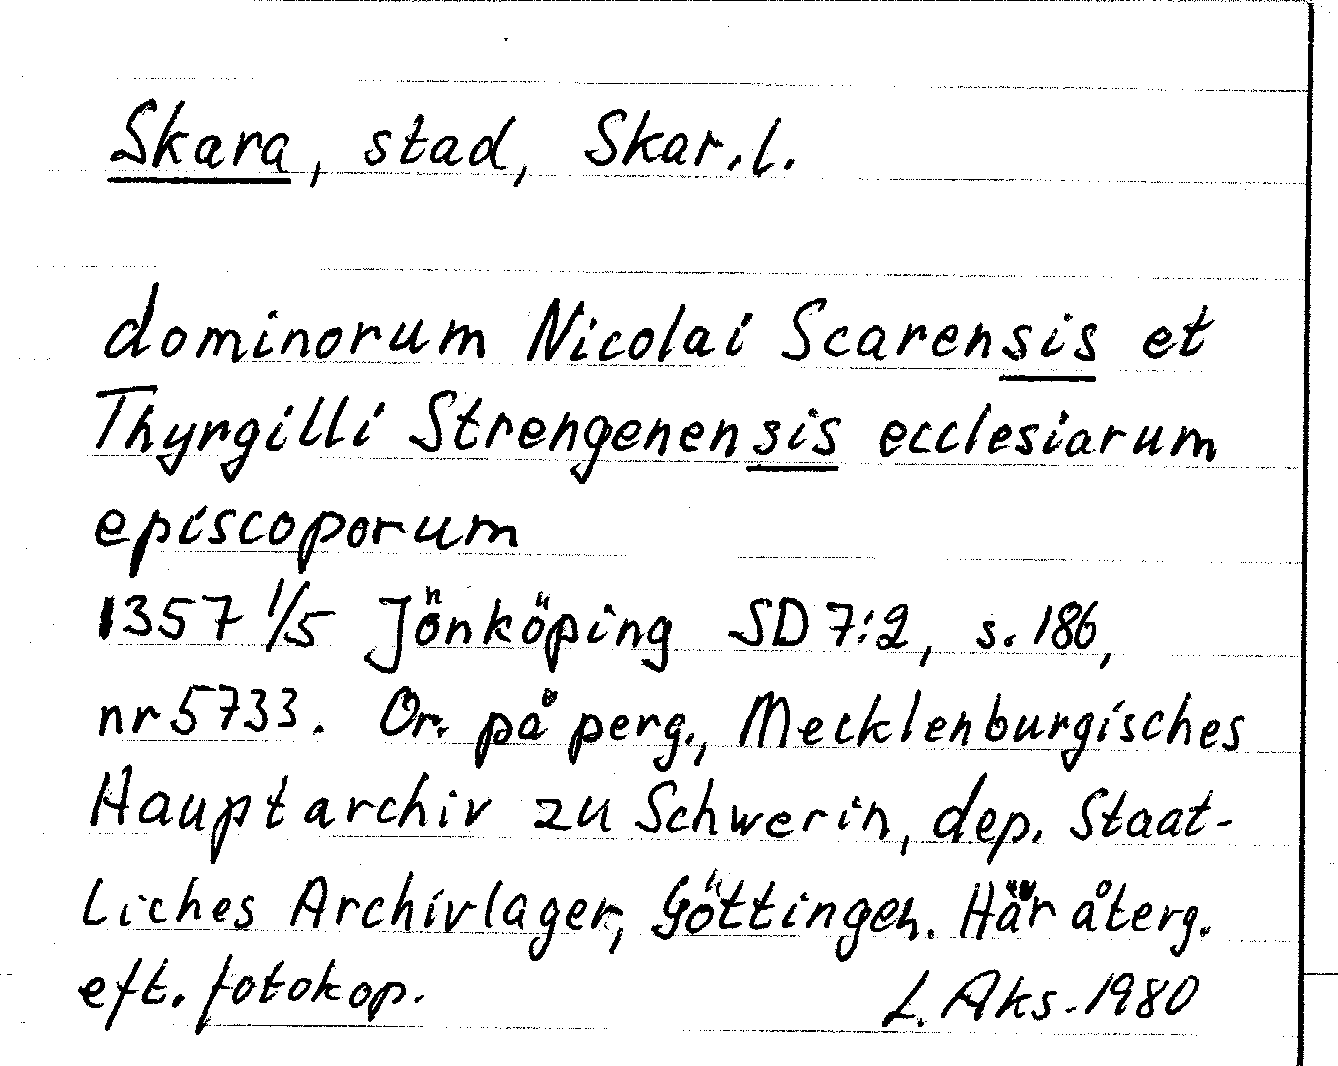 Skara, stad, Skar.l.
dominorum Nicolai Scarensis et
Thyrgilli Strengenensis ecclesiarum
episcoporum
1357 1/5 Jönköping SD 7:2, s. 186,
nr 5733. Or. på perg., Mecklenburgisches
Hauptarchiv zu Schwerin, dep. Staat-
liches Archivlager, Göttingen. Här återg.
eft. fotokop. L. Aks. 1980